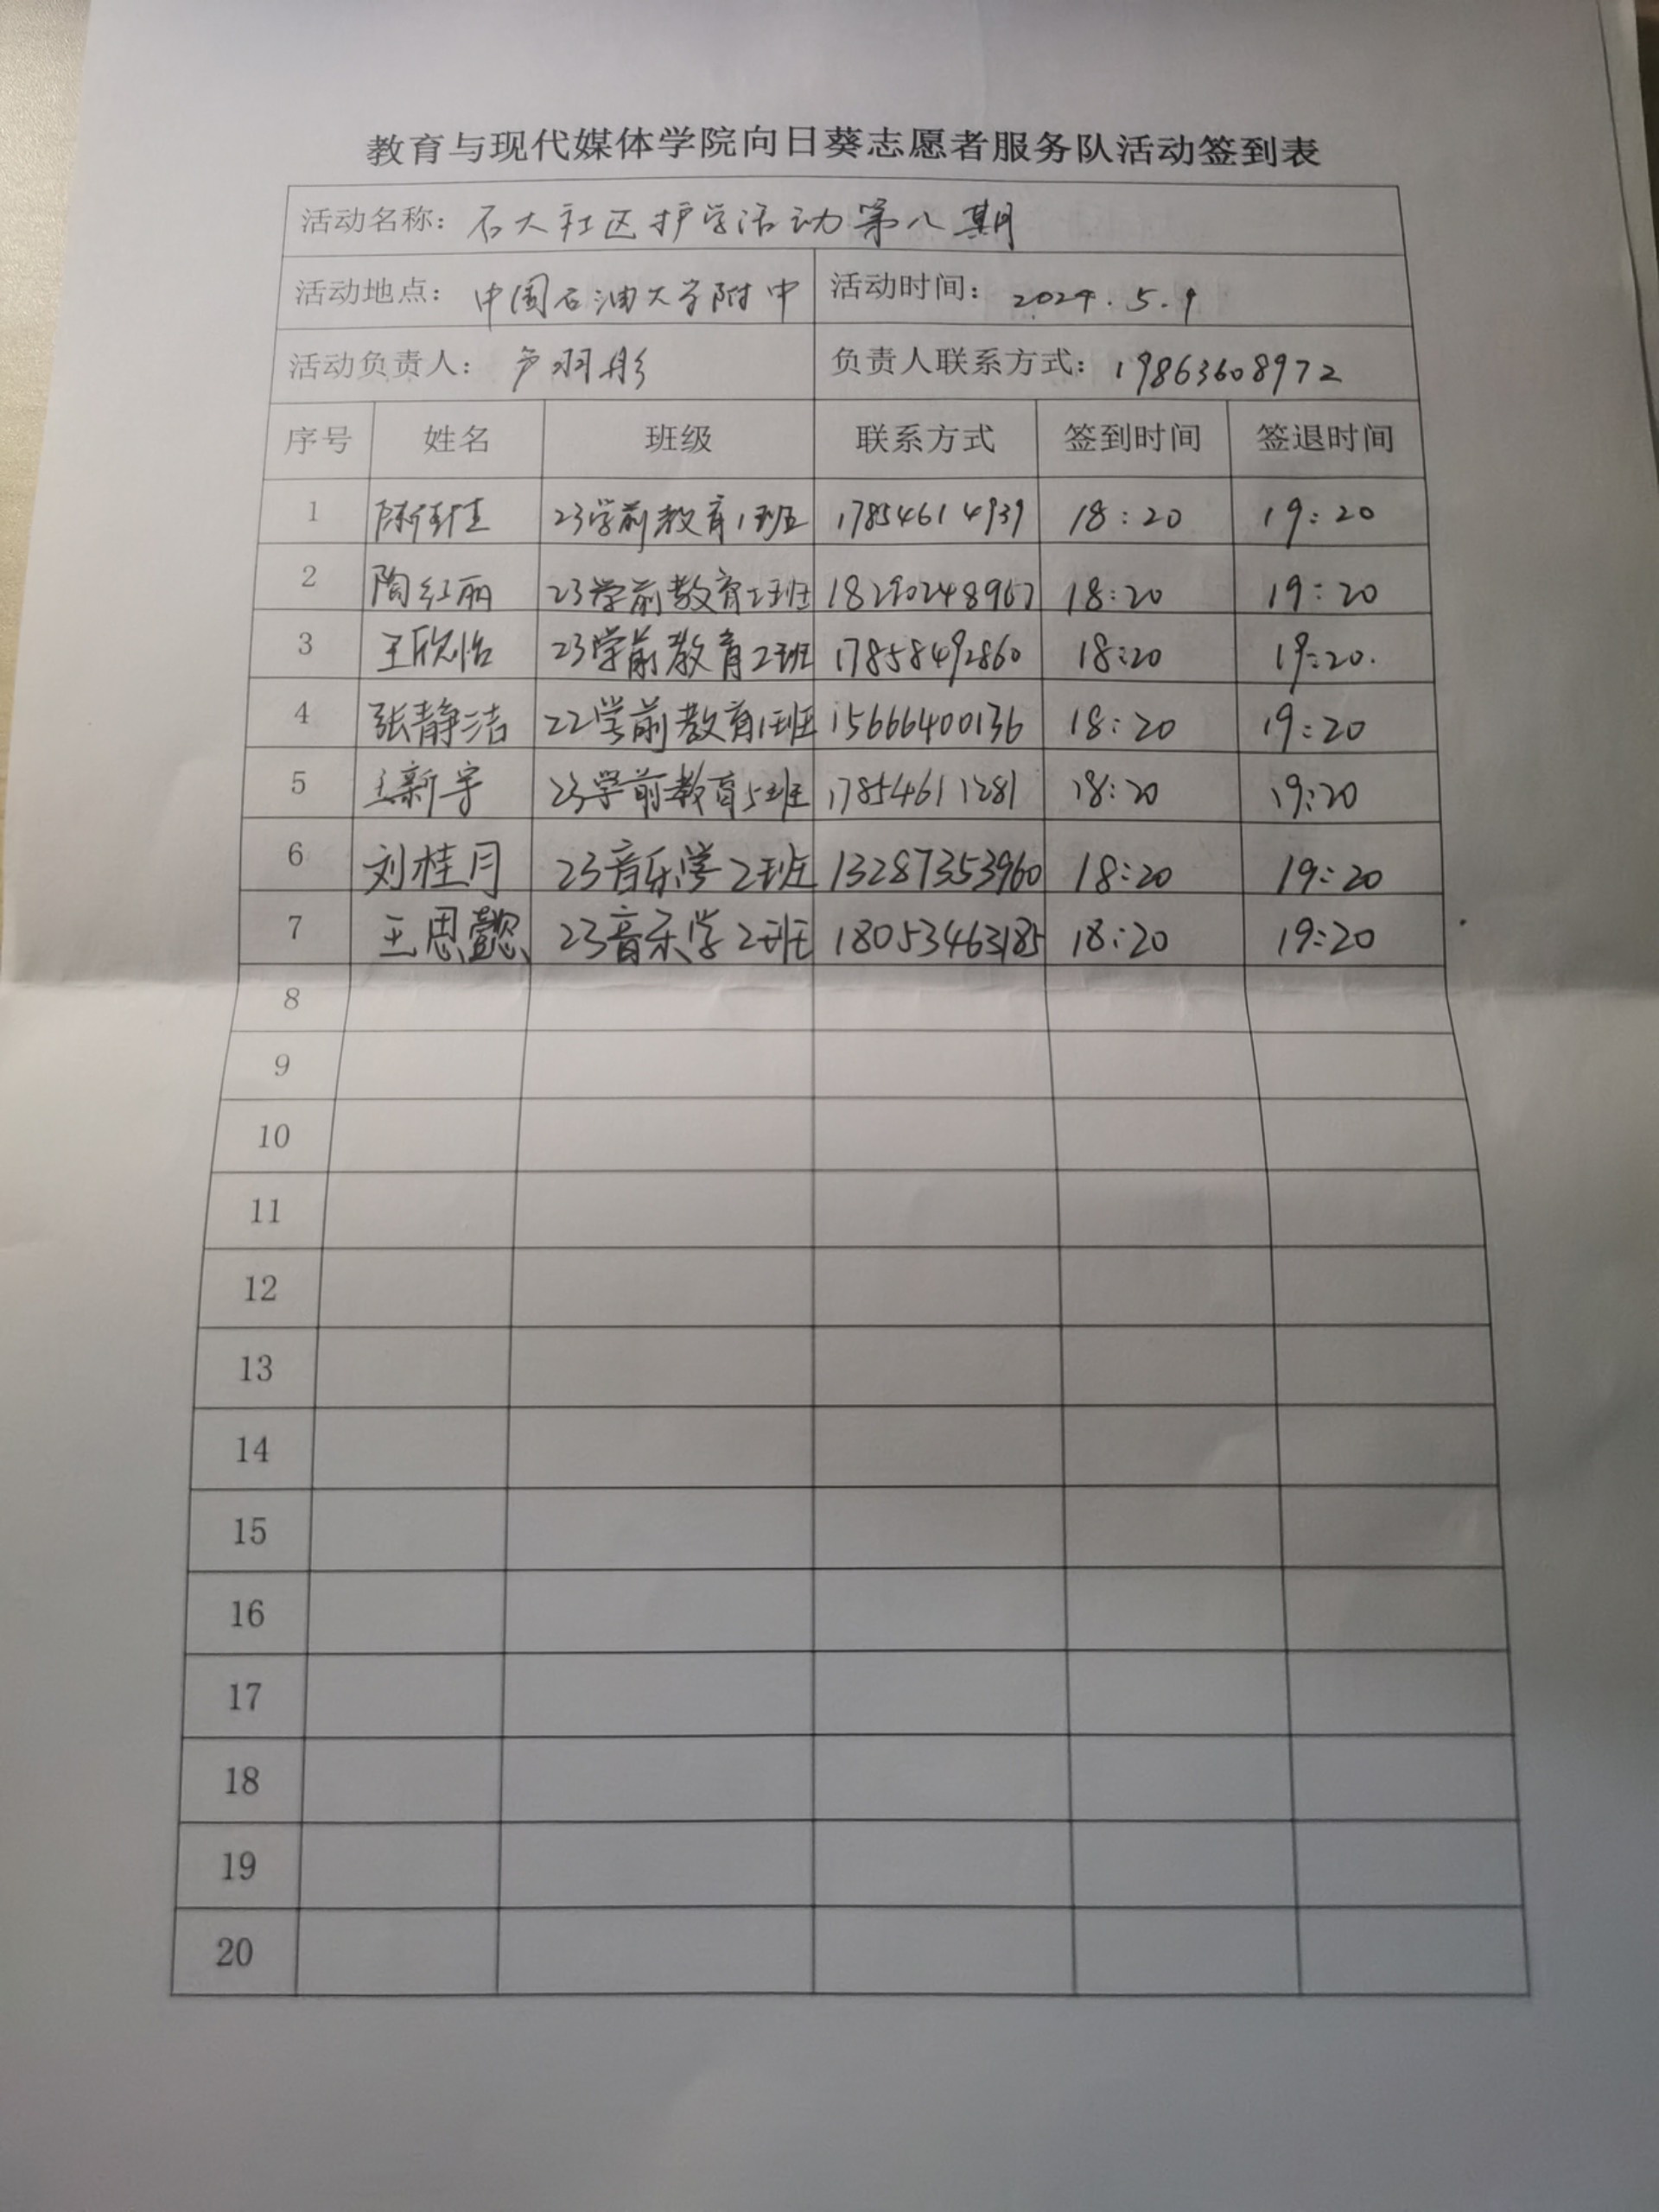 教育与现代媒体学院向日葵志愿者服务队活动签到表
活动名称：石大社区护学活动第八期
活动地点：中国石油大学附中 活动时间：2024.5.9
活动负责人：卢羽彤 负责人联系方式：19863608972
序号 姓名 班级 联系方式 签到时间 签退时间
1 陈佳 23学前教育1班 17854614939 18:20 19:20
2 陶红丽 23学前教育2班 18290248967 18:20 19:20
3 王欣怡 23学前教育2班 17858492860 18:20 19:20.
4 张静洁 22学前教育1班 15666400136 18:20 19:20
5 王新宇 23学前教育5班 17854611281 18:20 19:20
6 刘桂月 23音乐学2班 13287353960 18:20 19:20
7 王思懿 23音乐学2班 18053463185 18:20 19:20
8
9
10
11
12
13
14
15
16
17
18
19
20